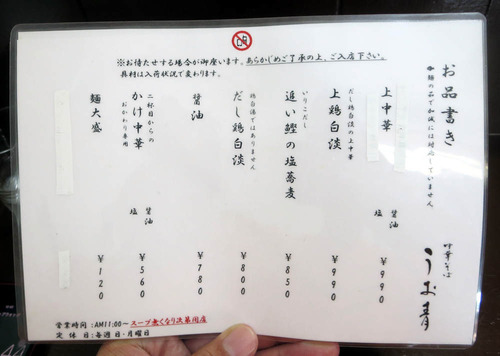 ※お待たせする場合が御座います。あらかじめご了承の上、ご入店下さい。
具材は入荷状況で変わります。
お品書き
上中華
醤油
塩
¥990
だし鶏白淡の上中華
上鶏白淡
¥990
いりこだし
追い鰹の塩蕎麦
¥850
鶏白湯ではありません
だし鶏白淡
¥800
醤油
¥780
二杯目からの
おかわり専用
かけ中華
醤油
塩
¥560
麺大盛
¥120
中華そば
うお青
営業時間:AM11:00～スープ無くなり次第閉店
定休日:毎週日・月曜日